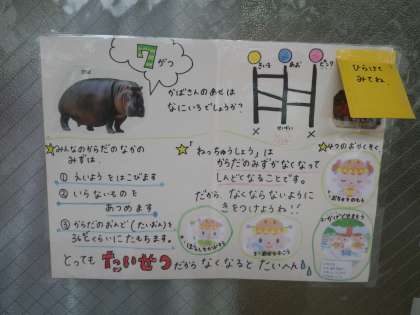 7
がつ
かば
かばさんのあせは
なにいろでしょうか？
きいろ
あお
ひらいて
みてね
みんなのからだのなかの
みずは、
① えいようをはこびます
② いらないものを
あつめます
③ からだのおんど（たいおん）を
36どくらいにたもちます。
「ねっちゅうしょう」は
からだのみずがなくなって
しんどくなることです。
だから、なくならないように
きをつけようね!!
4つのおやくそく
とっても たいせつ だから なくなると たいへん